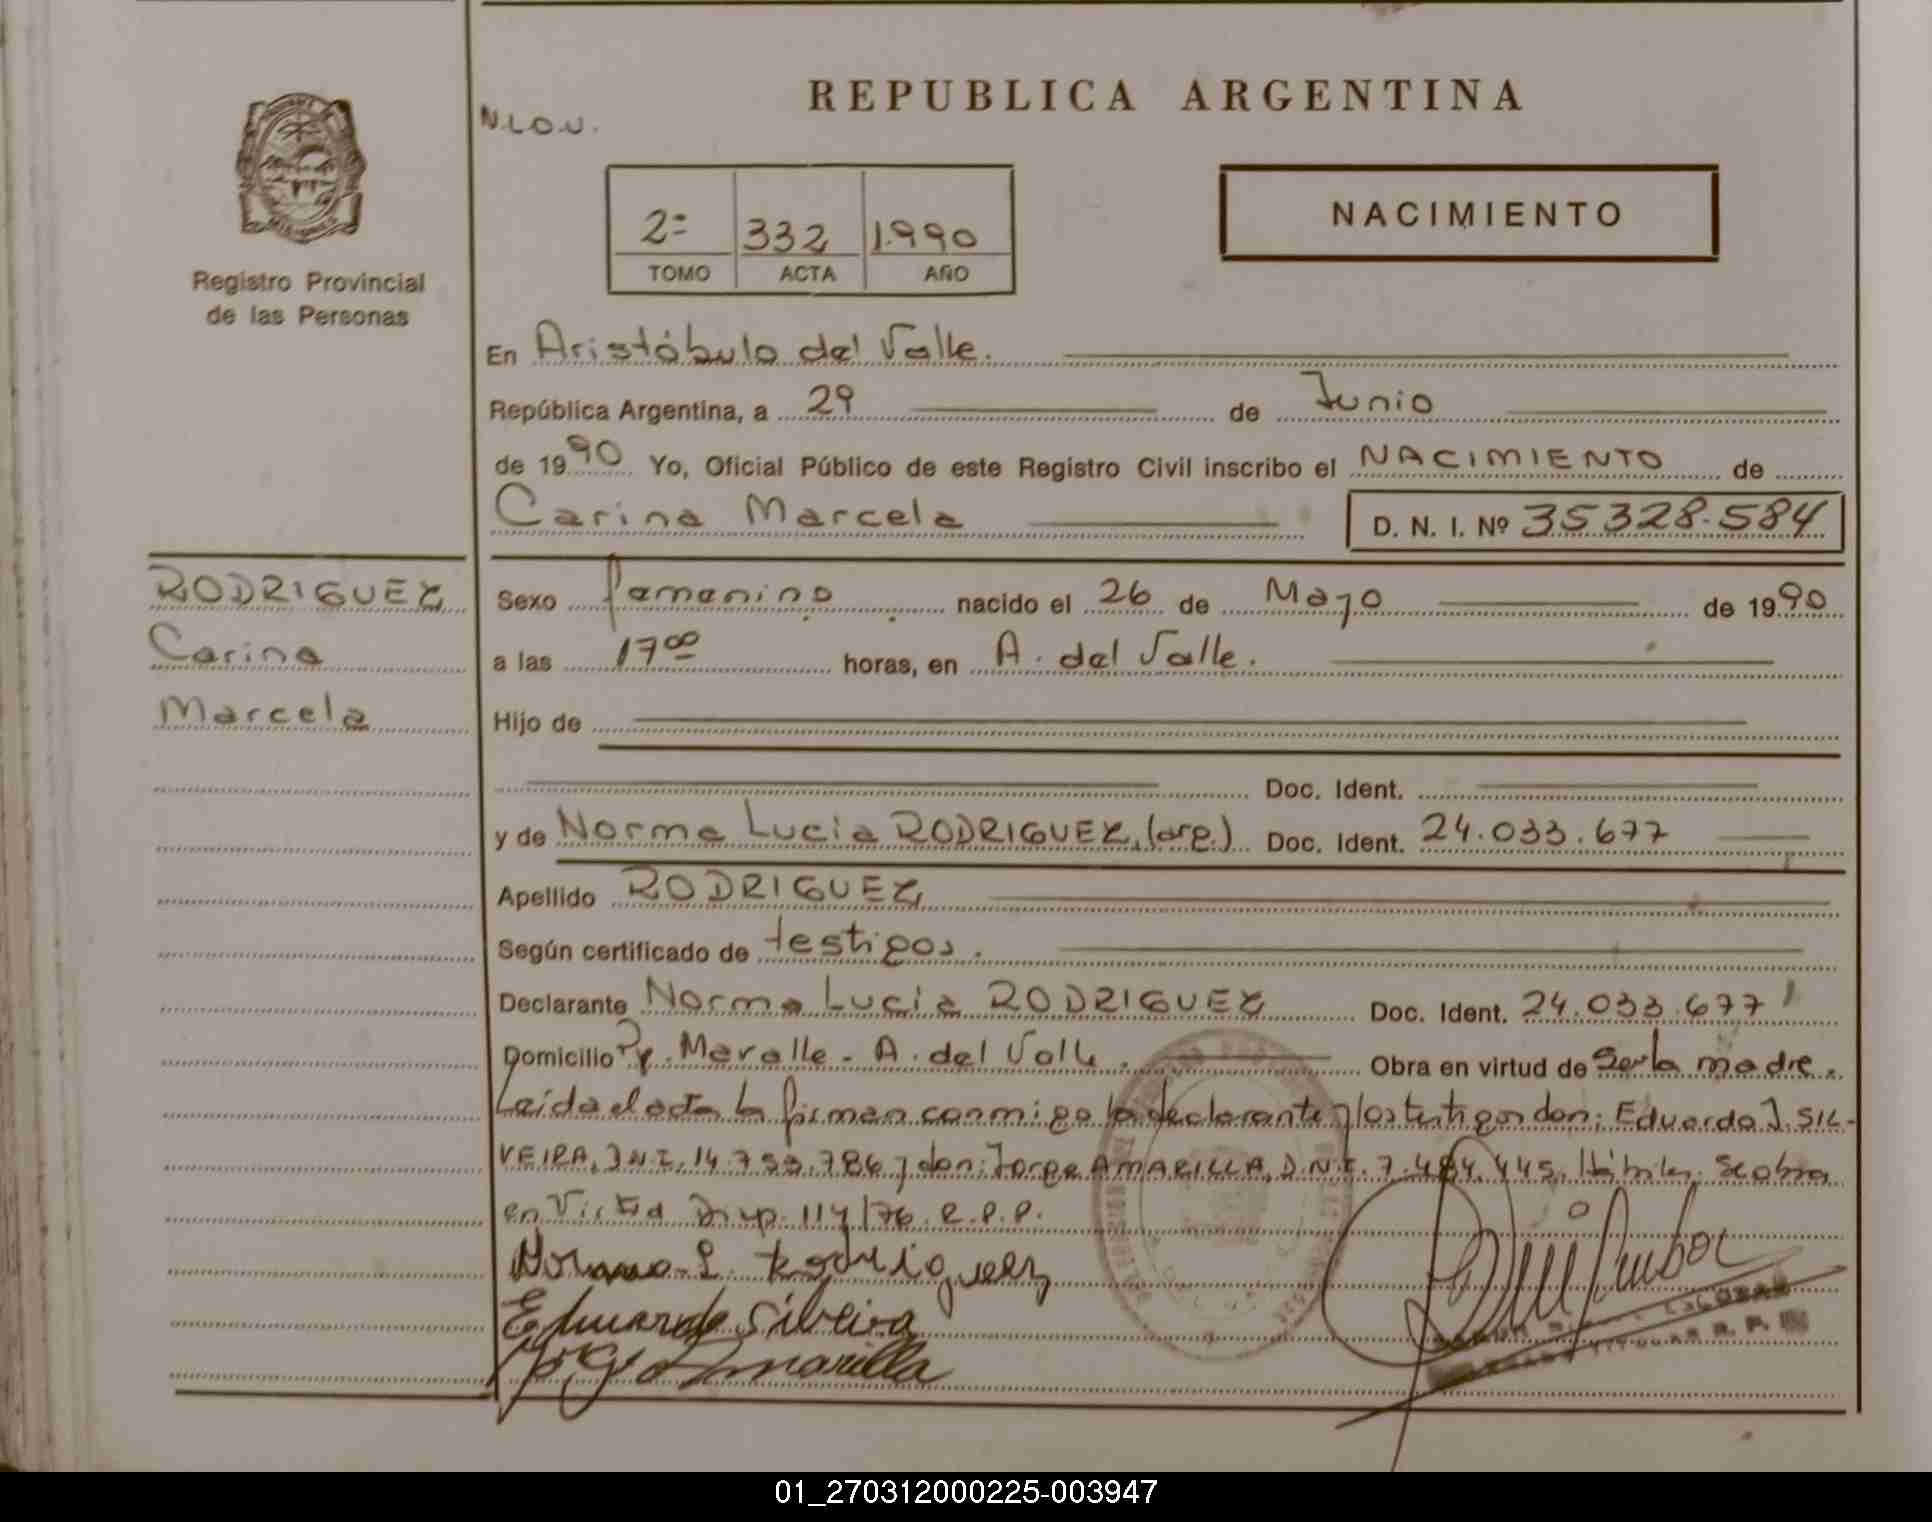 REPUBLICA ARGENTINA
N.L.O.U.
2=
332
1.990
TOMO
ACTA
AÑO
NACIMIENTO
Registro Provincial
de las Personas
En Aristóbulo del Valle.
República Argentina, a 29 de Junio
de 1990 Yo, Oficial Público de este Registro Civil inscribo el NACIMIENTO de
Carina Marcela
D. N. I. Nº 35328.584
RODRIGUEZ
Carina
Marcela
Sexo femenino nacido el 26 de Mayo de 1990
a las 17 00 horas, en A. del Valle.
Hijo de
Doc. Ident.
y de Norma Lucia RODRIGUEZ, (arg.) Doc. Ident. 24.033.677
Apellido RODRIGUEZ
Según certificado de testigos.
Declarante Norma Lucia RODRIGUEZ Doc. Ident. 24.033.677
Domicilio A. del Valle. Obra en virtud de Ser la madre.
Leida el acta la firman conmigo la declarante y los testigos don: Eduardo J. SIL-
VEIRA, D.N.I. 14.753.786 y don: Jorge AMARILLA, D.N.I. 7.484.445, Hábiles. Se obra
en Virtud Disp. 114/76. R.P.P.
Norma L. Rodriguez
Eduardo Silveira
Amarilla
01_270312000225-003947